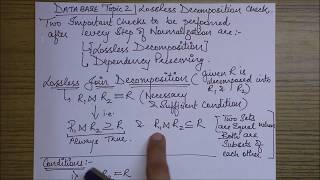 DATA BASE Topic 2| Lossless Decomposition Check
Two Important Checks to be performed
after every Step of Normalization are:-
Lossless Decomposition
Dependency Preserving.
Lossless Join Decomposition (given R is
decomposed into
R₁ & R₂)
↳ R₁ ⋈ R₂ = R (Necessary
& Sufficient Condition)
i.e.
R₁ ⋈ R₂ ⊇ R & R₁ ⋈ R₂ ⊆ R
Always True.
Two Sets
are Equal when
Both are
Subsets of
each other
Conditions:-